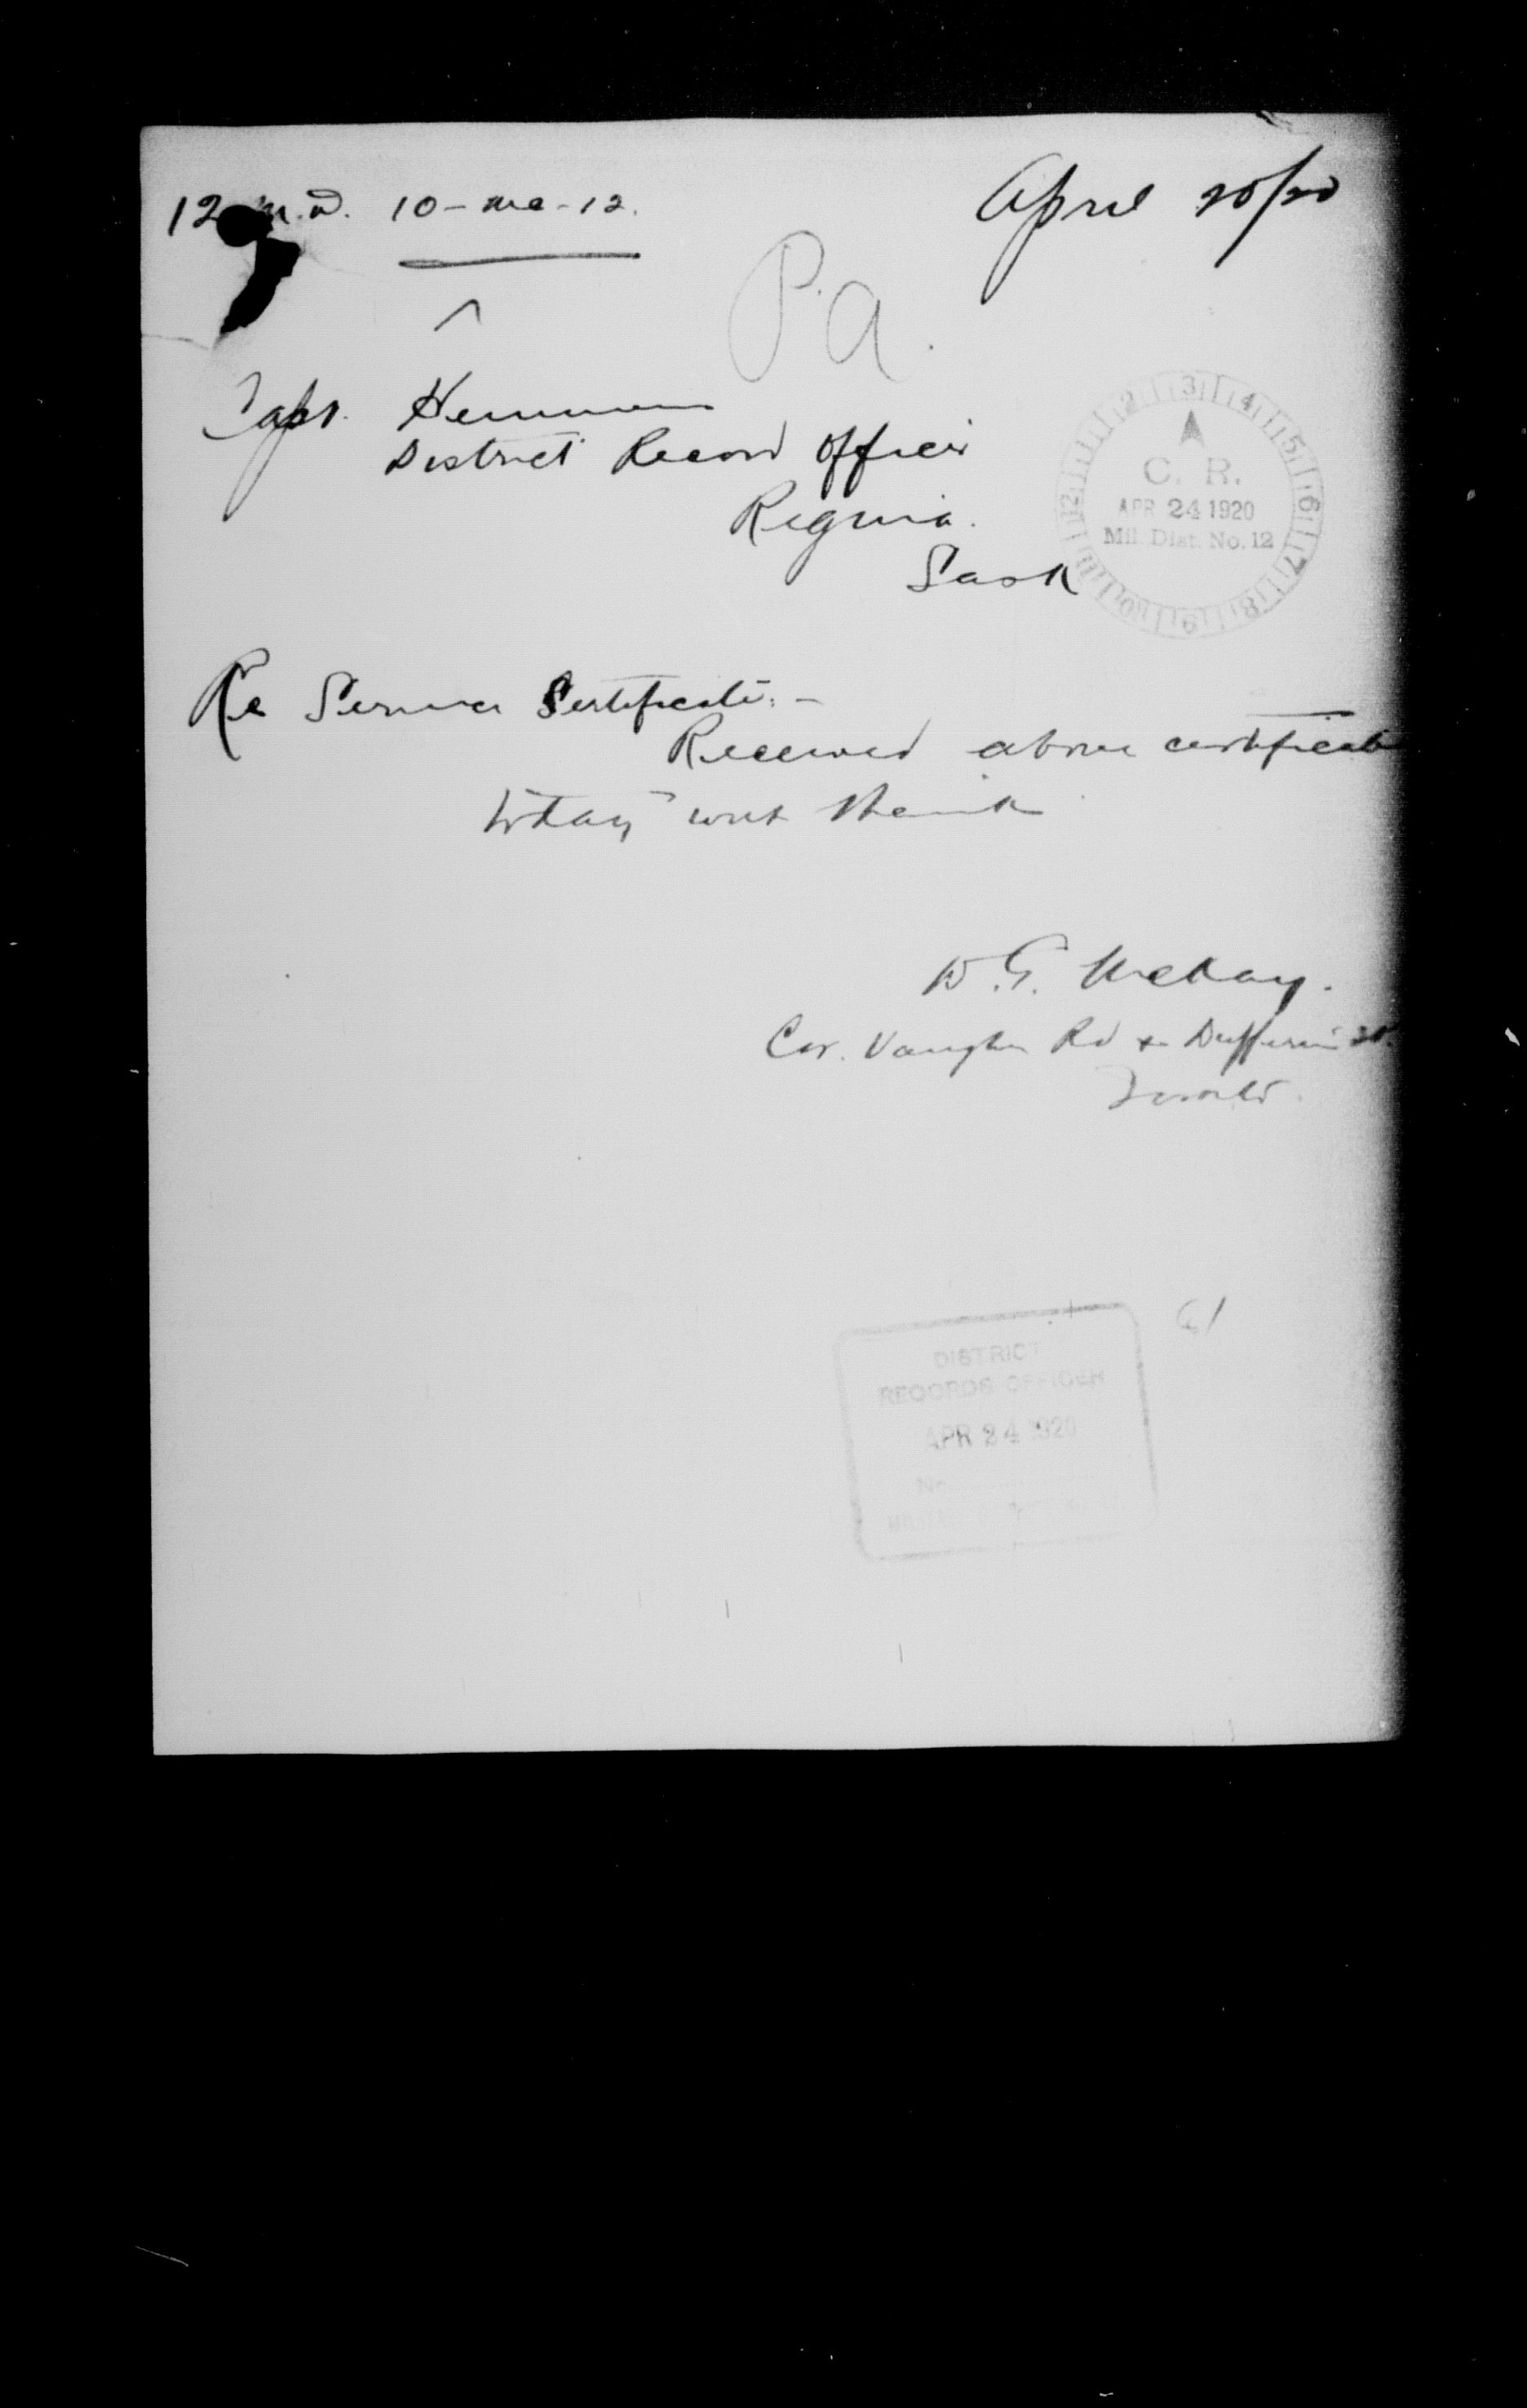 12 M.D. 10-Mc-12.
April 20/20
P.A.
Capt.
District Record Officer
Regina.
Sask
C. R.
APR 24 1920
Mil. Dist. No. 12
Re Service Certificate: -
Received above certificate
today with thanks
D. G. McKay.
Cor. Vaughn Rd & Dufferin St.
Toronto.
61
DISTRICT
RECORDS OFFICER
APR 24 1920
No